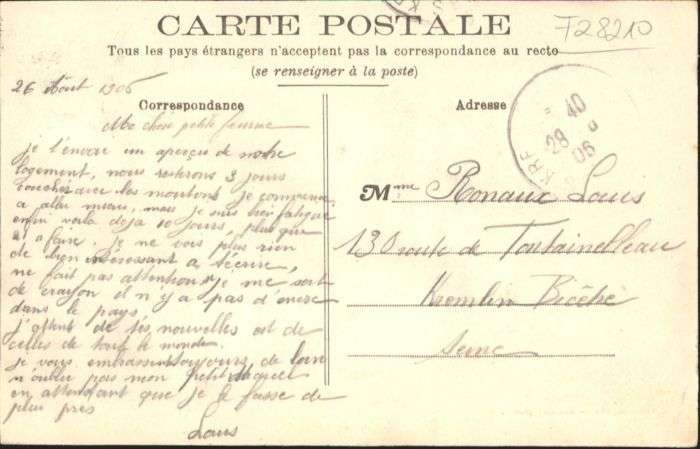 CARTE POSTALE
F28210
Tous les pays étrangers n'acceptent pas la correspondance au recto
(se renseigner à la poste)
26 Aout 1906
Correspondance
Ma chère petite femme
je t'envoie un aperçu de notre
logement, nous resterons 3 jours
coucher avec les moutons je commence
a aller mieux, mais je suis bien fatigué
enfin voila deja 10 jours, plus que
a faire. Je ne vois plus rien
de bien interessant a t'écrire,
ne fait pas attention si je me sert
de crayon il n y a pas d'encre
dans le pays
j'attent de tes nouvelles et de
celles de tout le monde
je vous embrassent toujours de loin
n'oublie pas mon petit Marcel
en attendant que je le fasse de
plus près
Louis
Adresse
40
28 8
06
KRE
Mme Ronaux Louis
130 route de Fontainebleau
Kremlin Bicêtre
Seine